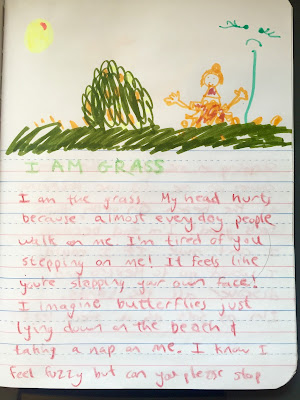 I AM GRASS
I am the grass. My head hurts
because almost everyday people
walk on me. I'm tired of you
stepping on me! It feels like
you're slapping your own face!
I imagine butterflies just
lying down on the beach &
taking a nap on me. I know I
feel fuzzy but can you please stop